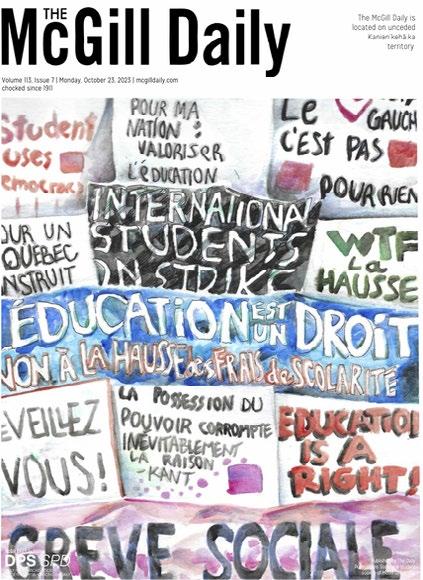 THE
McGill Daily
The McGill Daily is
located on unceded
Kanien'kehá:ka
territory
Volume 113, Issue 7 | Monday, October 23, 2023 | mcgilldaily.com
chocked since 1911
Student
uses
emocracy
POUR MA
NATION :
VALORiSER
L'ÉDUCATION
Le GAUCH
C'EST PAS
POUR RIEN
INTERNATIONAL
STUDENTS
ON STRIKE
OUR UN
QUÉBEC
NSTRUIT
WTF
La
HAUSSE
ÉDUCATiON EST UN DROiT
NON À LA HAUSSE des FRAIS de SCOLARITÉ
EVEILLEZ
VOUS!
LA POSSESSION DU
POUVOIR CORROMPTE
INÉVITABLEMENT
LA RAISON
-KANT
EDUCATION
IS A
RIGHT!
GREVE SOCIALE
DPS SPD
Published by The Daily